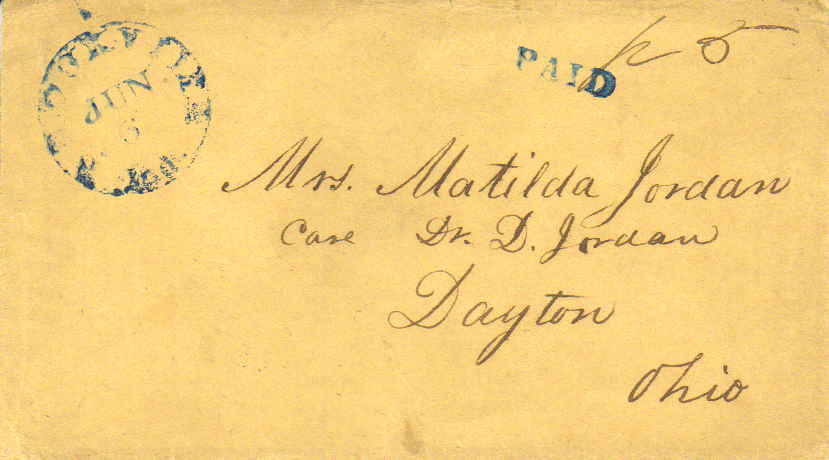 JUN
6
PAID
5
Mrs. Matilda Jordan
Care Dr. D. Jordan
Dayton
Ohio